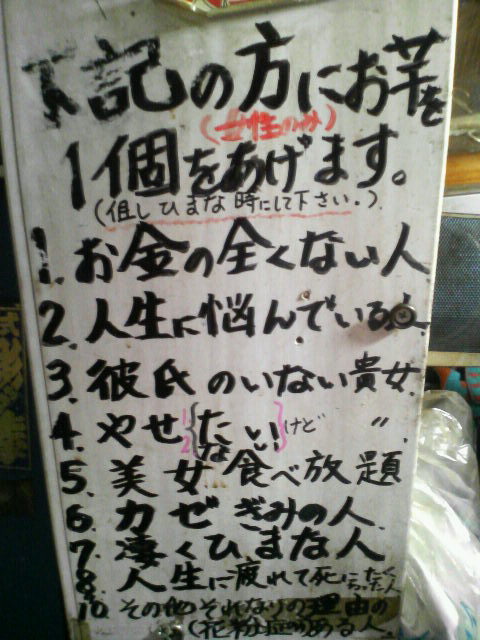 下記の方にお芋を
(女性のみ)
1個をあげます。
(但しひまな時にして下さい。)
1. お金の全くない人
2. 人生に悩んでいる人
3. 彼氏のいない貴女
4. やせ{1たい!2ない!}けど 〃
5. 美女食べ放題
6. カゼぎみの人
7. 凄くひまな人
8. 人生に疲れて死
10. その他それなりの理由の
(花粉症のある人